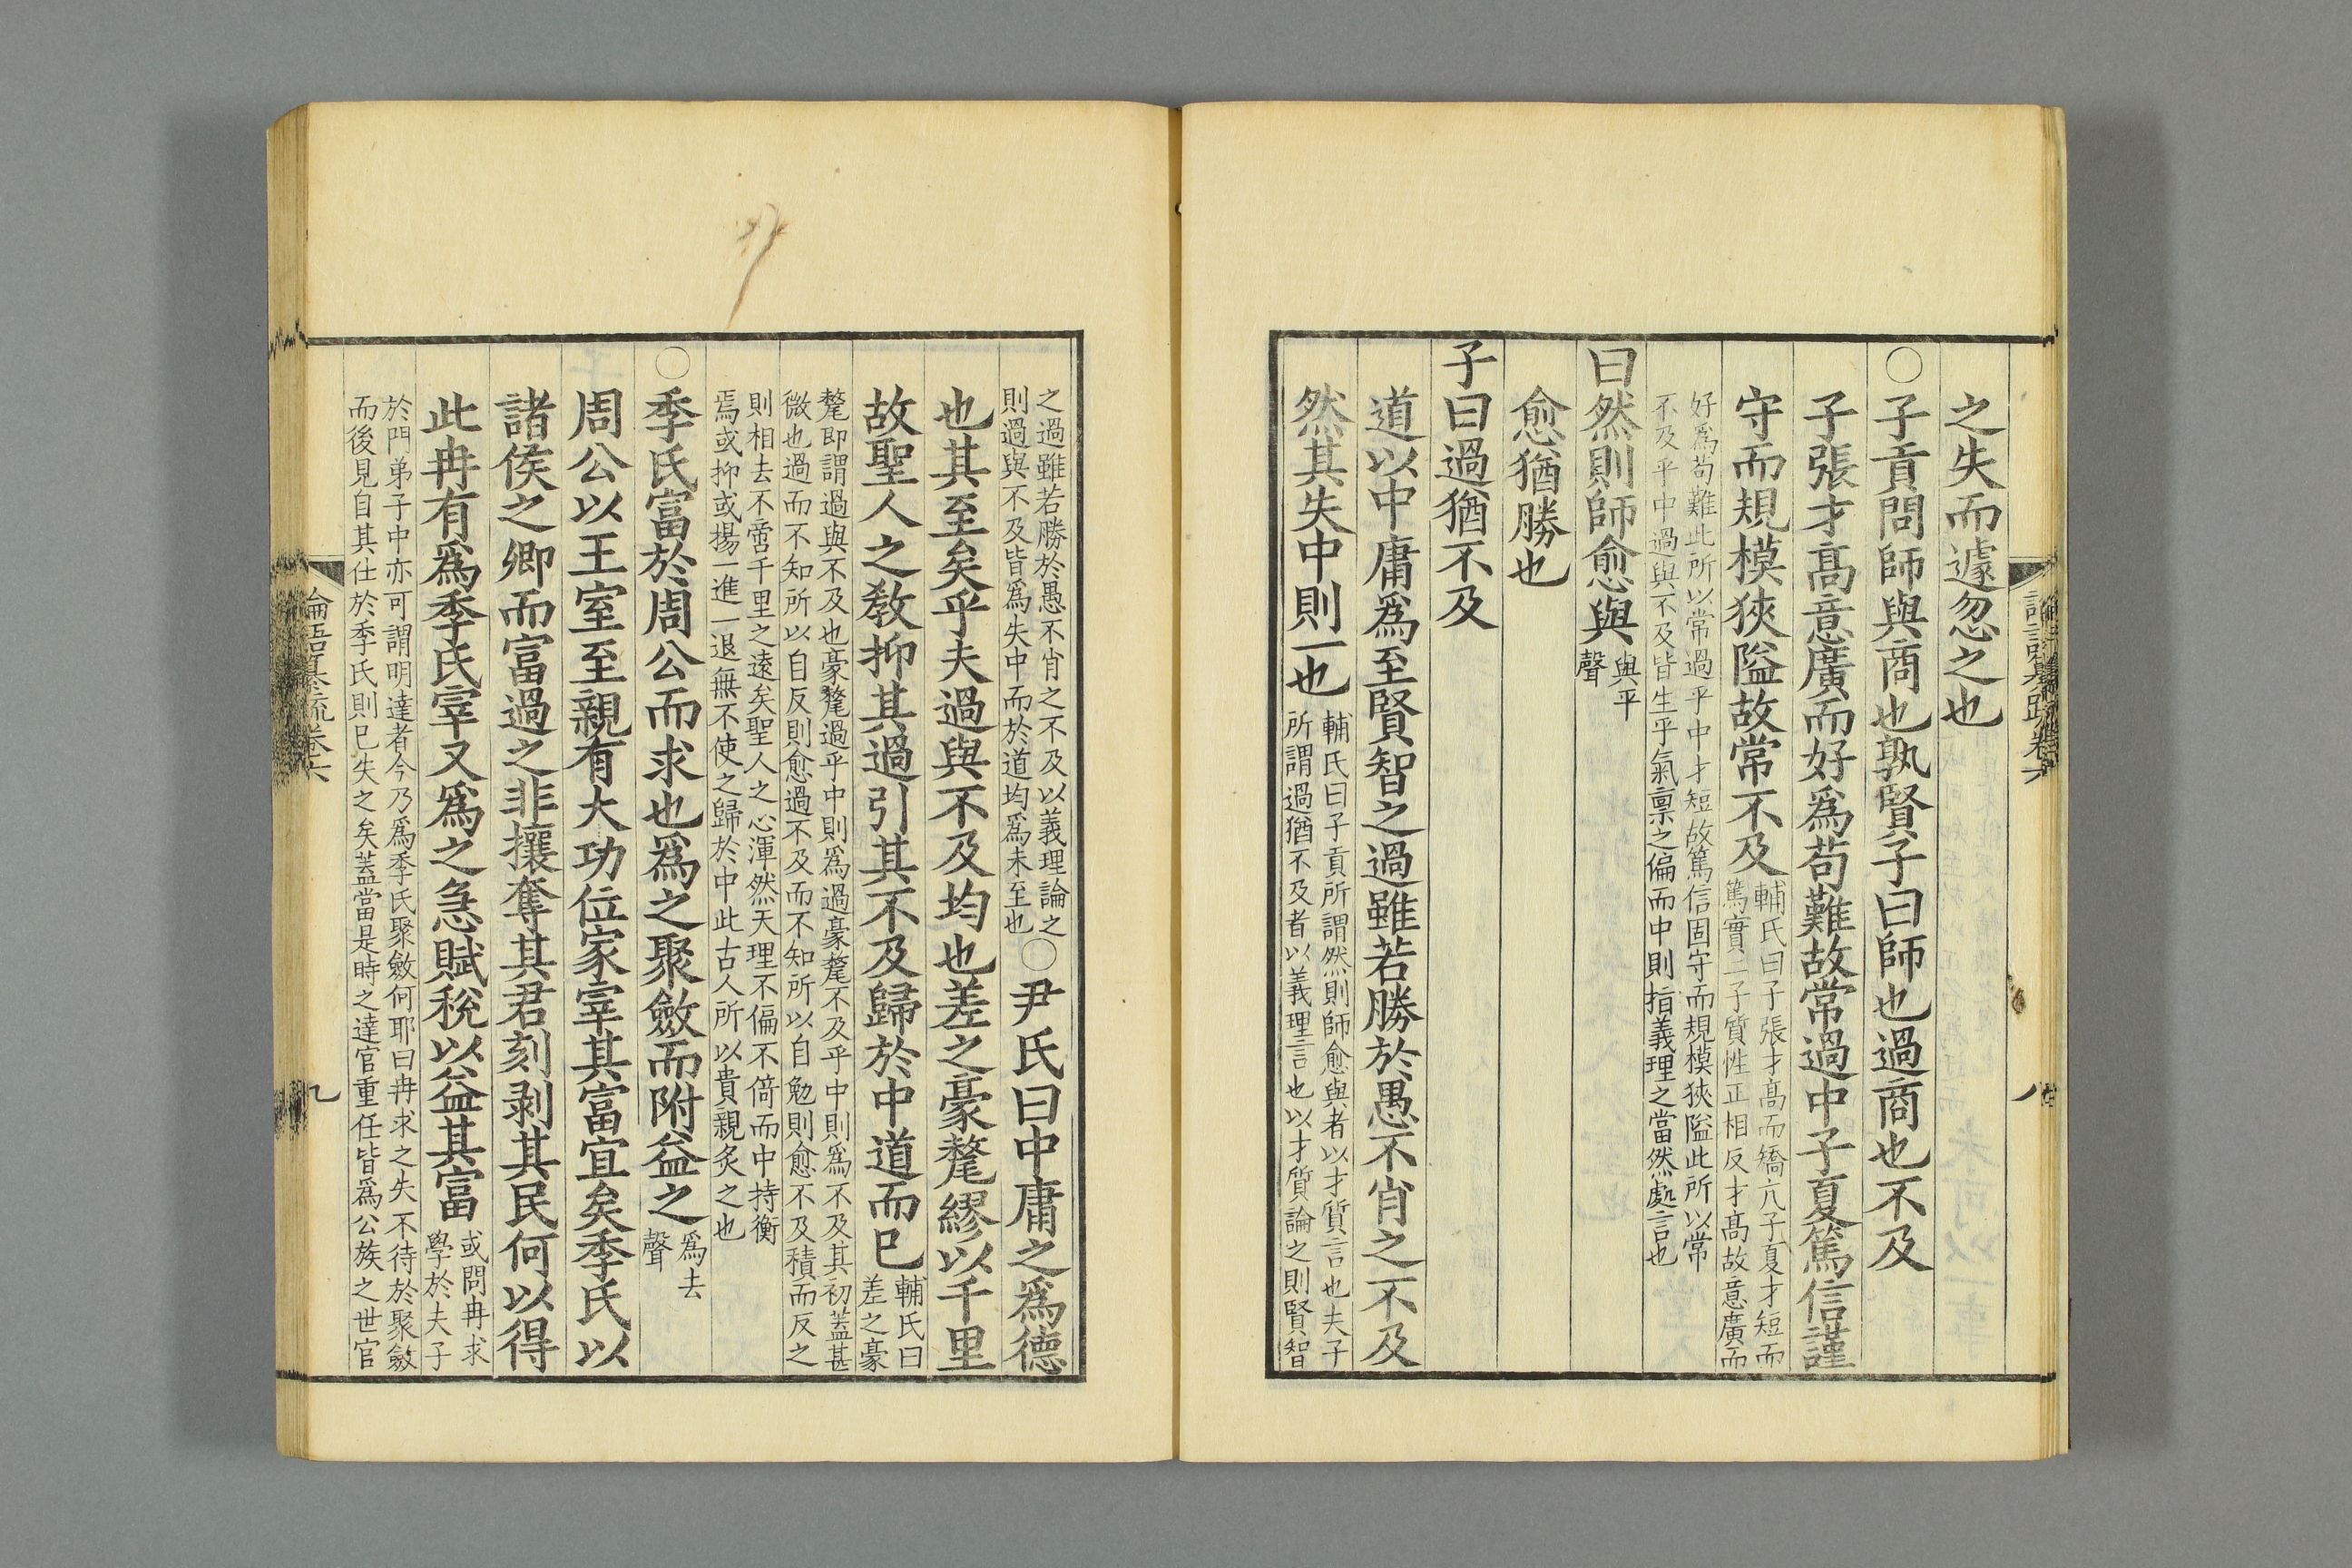 之失而遽忽之也
○子貢問師與商也孰賢子曰師也過商也不及
子張才高意廣而好爲苟難故常過中子夏篤信謹
守而規模狹隘故常不及
輔氏曰子張才高而矯亢子夏才短而
篤實二子質性正相反才高故意廣而
好爲苟難此所以常過乎中才短故篤信固守而規模狹隘此所以常
不及乎中過與不及皆生乎氣禀之偏而中則指義理之當然處言也
曰然則師愈與
與平
聲
愈猶勝也
子曰過猶不及
道以中庸爲至賢智之過雖若勝於愚不肖之不及
然其失中則一也
輔氏曰子貢所謂然則師愈與者以才質言也夫子
所謂過猶不及者以義理言也以才質論之則賢智
之過雖若勝於愚不肖之不及以義理論之
則過與不及皆爲失中而於道均爲未至也
○尹氏曰中庸之爲德
也其至矣乎夫過與不及均也差之豪氂繆以千里
故聖人之敎抑其過引其不及歸於中道而已
輔氏曰
差之豪
氂即謂過與不及也豪氂過乎中則爲過豪氂不及乎中則爲不及其初蓋甚
微也過而不知所以自反則愈過不及而不知所以自勉則愈不及積而反之
則相去不啻千里之遠矣聖人之心渾然天理不偏不倚而中持衡
焉或抑或揚一進一退無不使之歸於中此古人所以貴親炙之也
○季氏富於周公而求也爲之聚斂而附益之
爲去
聲
周公以王室至親有大功位冢宰其富宜矣季氏以
諸侯之卿而富過之非攘奪其君刻剥其民何以得
此冉有爲季氏宰又爲之急賦稅以益其富
或問冉求
學於夫子
於門弟子中亦可謂明達者今乃爲季氏聚斂何耶曰冉求之失不待於聚斂
而後見自其仕於季氏則已失之矣蓋當是時之達官重任皆爲公族之世官
論語纂疏卷六
九